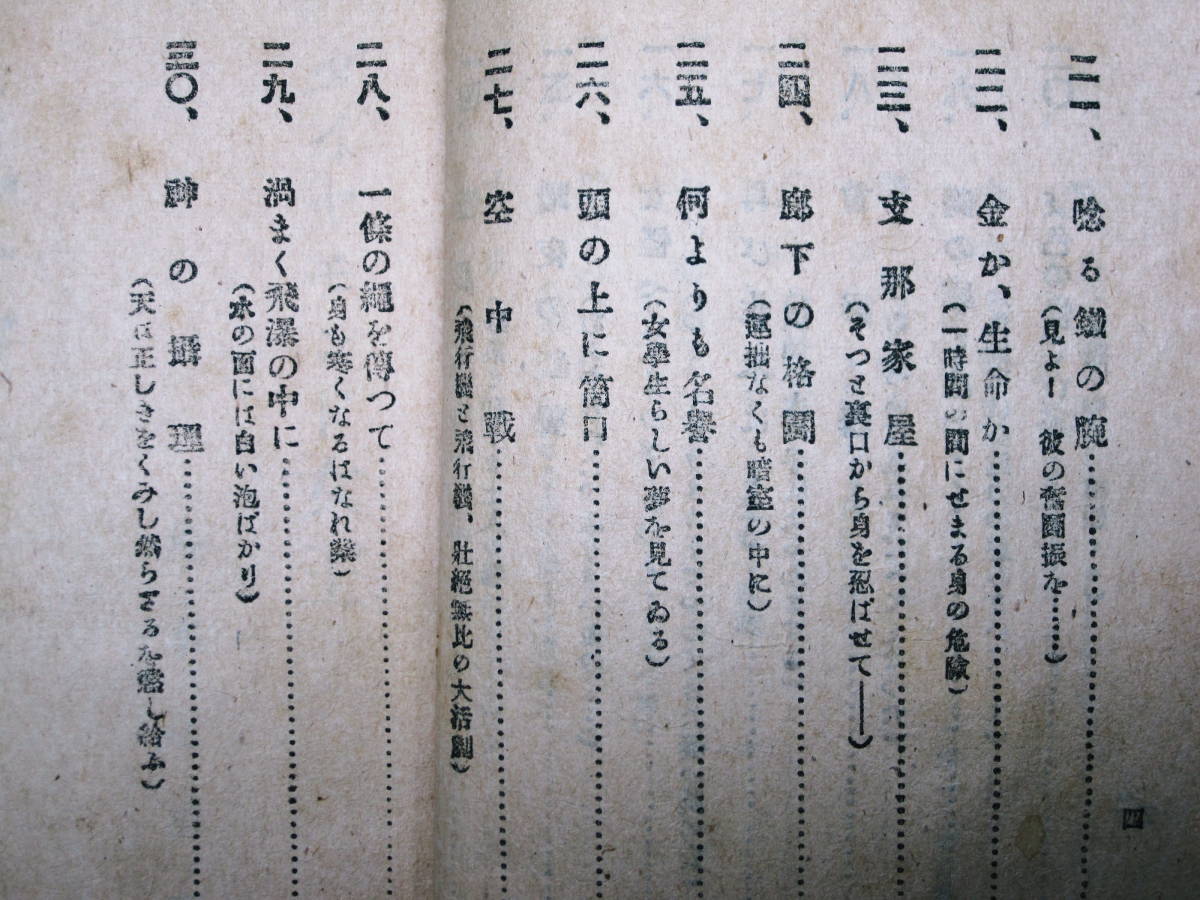 四
二一、唸る鐵の腕……………
(見よー 彼の奮鬪振を……)
二二、金か、生命か……………
(一時間の間にせまる身の危險)
二三、支那家屋……………
(そつと裏口から身を忍ばせて——)
二四、廊下の格鬪……………
(運拙なくも暗室の中に)
二五、何よりも名譽……………
(女學生らしい夢を見てゐる)
二六、頭の上に筒口……………
二七、空中戰……………
(飛行機と飛行機、壯絕無比の大活劇)
二八、一條の繩を傳つて……………
(身も寒くなるはなれ業)
二九、渦まく飛瀑の中に……………
(水の面には白い泡ばかり)
三〇、神の攝理……………
(天は正しきをくみし然らざるを懲し給ふ)